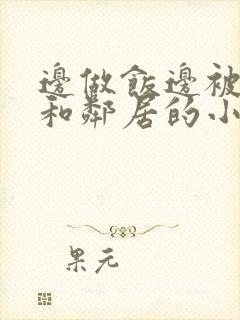 邊做飯邊被
和鄰居的小
果元